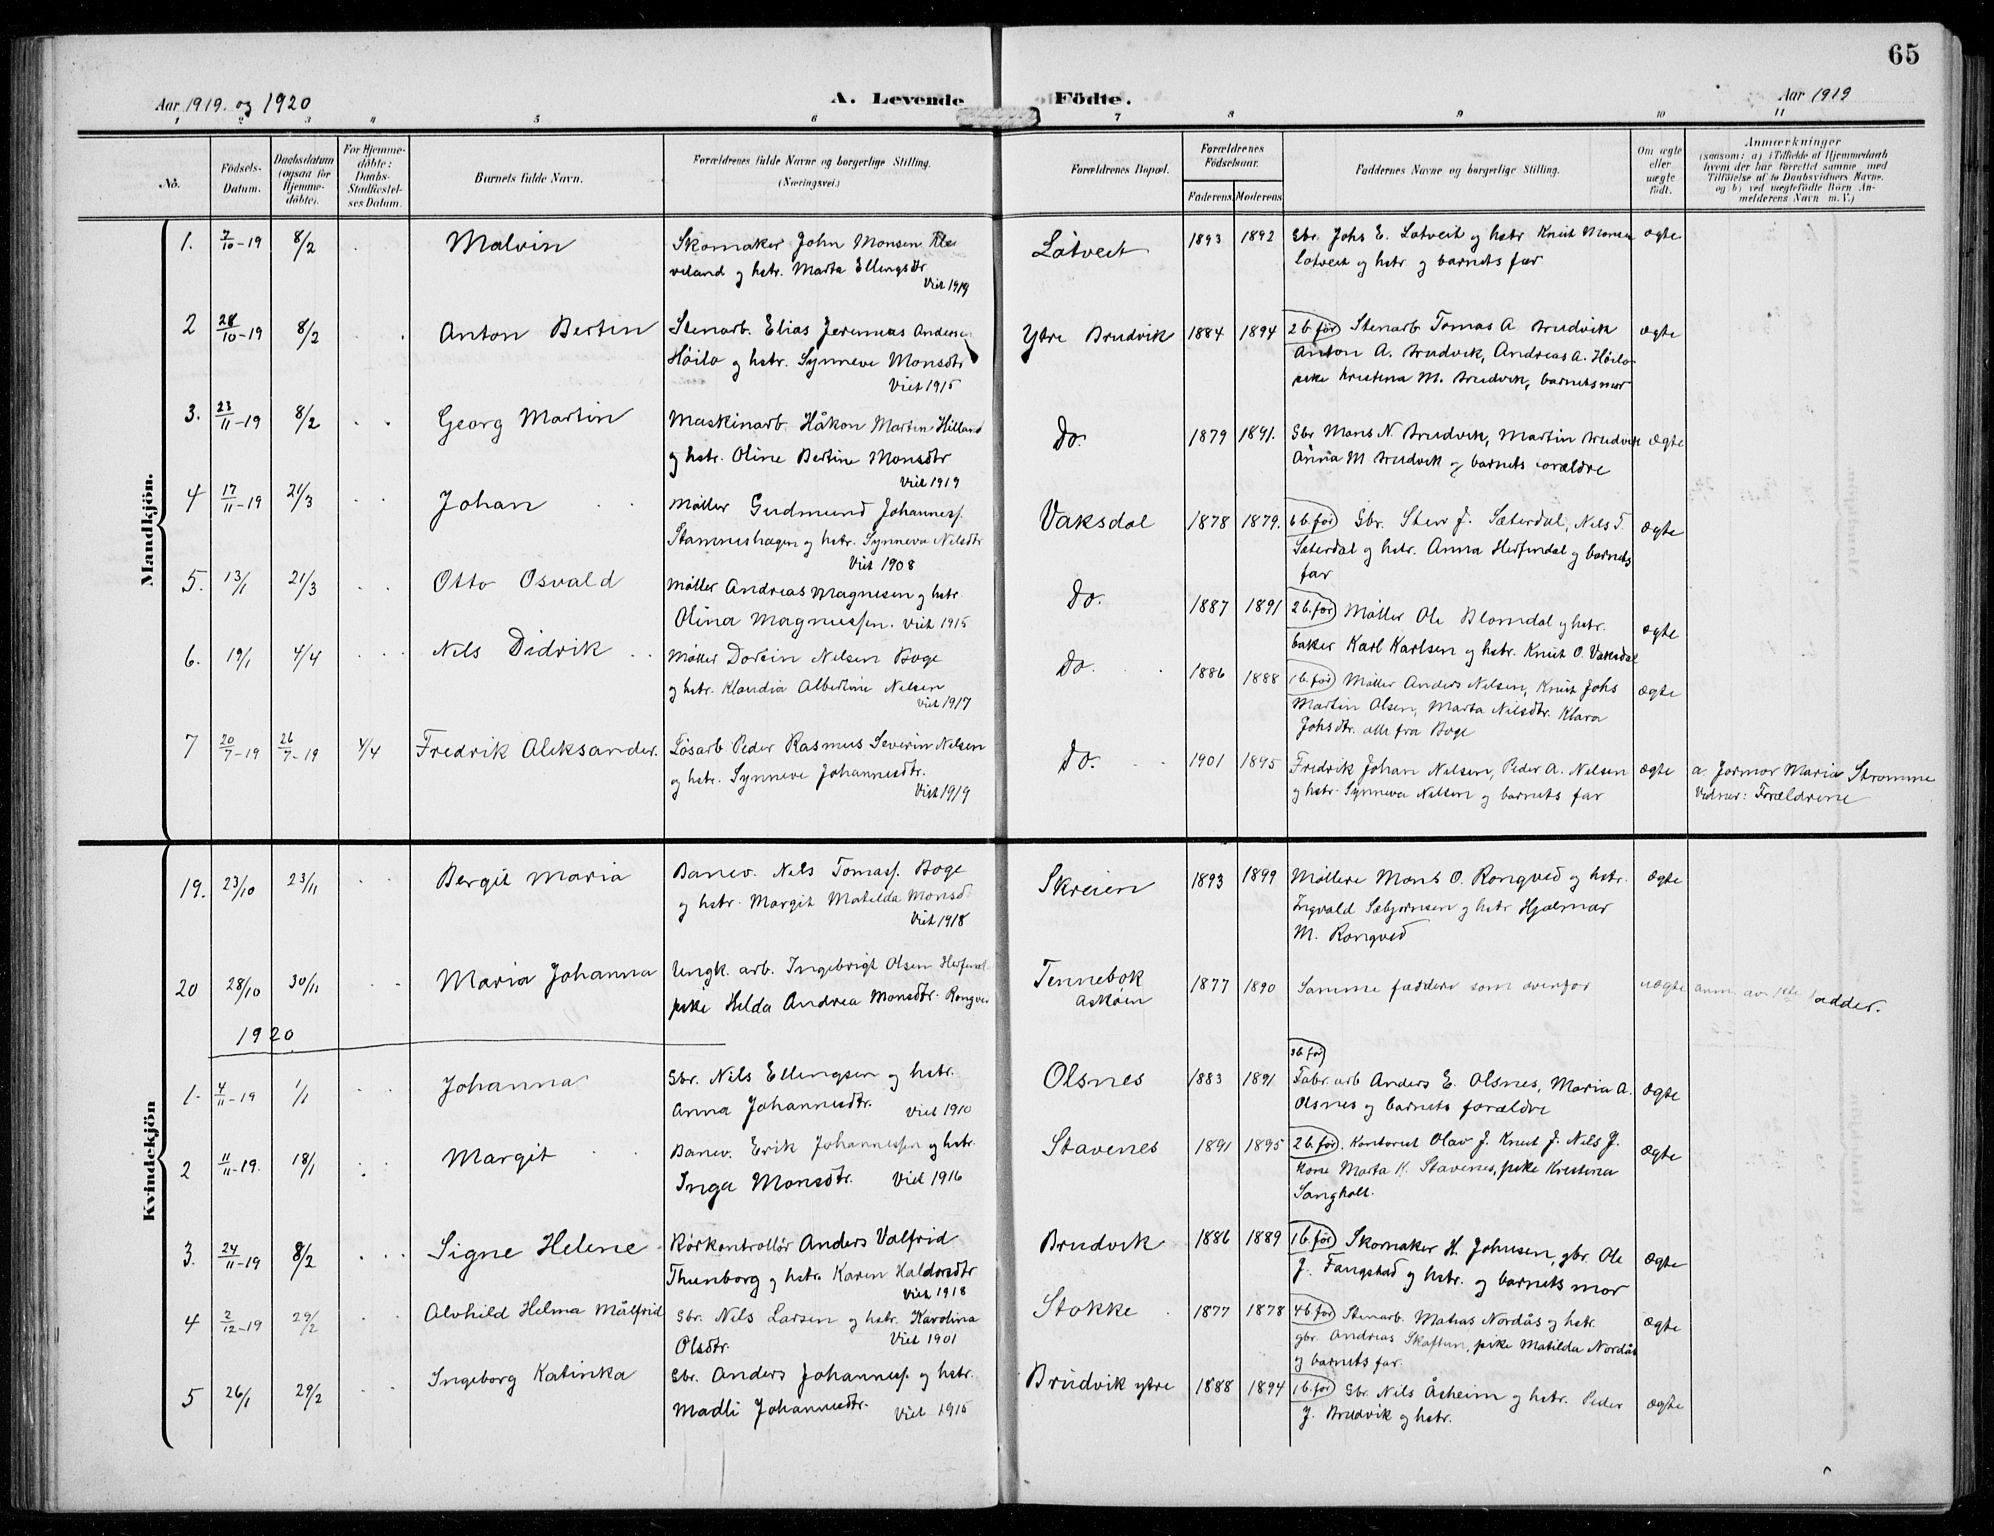 65
Aar 1919. og 1920
A. Levende Födte.
Aar 1919
1 2 3 4 5 6 7 8 9 10 11
No.
Födsels-Datum.
Daabsdatum (ogsaa for Hjemme-döbte).
For Hjemme-döbte: Daabs-Stadfæstel-ses Datum.
Barnets fulde Navn.
Forældrenes fulde Navne og borgerlige Stilling.
(Næringsvei.)
Forældrenes Bopæl.
Forældrenes Födselsaar.
Faderens Moderens
Faddernes Navne og borgerlige Stilling.
Om ægte eller uægte födt.
Anmærkninger
(saasom: a) i Tilfælde af Hjemmedaab
hvem der har forrettet samme med
Tilföielse af to Daabsvidners Navne.
og b) ved uægtefödte Börn An-
melderens Navn m. V.)
Mandkjön.
1. 7/10-19 8/2 Malvin
Skomaker John Monsen
veland og hstr. Marta Ellingsdtr
Viet 1919
Låtveit 1893 1892
Gbr. Johs E. Låtveit og hstr Knut Monsen
Låtveit og hstr og barnets far
ægte
2 28/10-19 8/2 Anton Bertin
Stenarb. Elias Jeremias Andersen
Høilo og hstr. Synneve Monsdtr
Viet 1915
Ytre Brudvik 1884 1894
2 b. før Stenarb Tomas A Brudvik
Anton A. Brudvik, Andreas A. Høilo
pike Kristina M. Brudvik, barnets mor
ægte
3. 23/11-19 8/2 Georg Martin
Maskinarb. Håkon Martin Hilland
og hstr. Oline Bertine Monsdtr
Viet 1919
Do. 1879 1891.
Gbr Mons N. Brudvik, Martin Brudvik
Anna M Brudvik og barnets forældre
ægte
4 17/11-19 21/3 Johan
Møller Gudmund Johannesf.
Stammeshagen og hstr. Synneva Nilsdtr
Viet 1908
Vaksdal 1878 1879.
6 b. før Gbr. Sten J. Sæterdal, Nels T.
Sæterdal og hstr. Anna Herfindal og barnets
far
ægte
5. 13/1 21/3 Otto Osvald
Møller Andreas Magnesen og hstr.
Olina Magnussen. Viet 1915
Do. 1887 1891
2 b. før Møller Ole Blomdal og hstr.
baker Karl Karlsen og hstr. Knut O. Vaksdal
ægte
6. 19/1 4/4 Nils Didrik
Møller Dortin Nelsen Boge
og hstr. Klaudia Albertine Nelsen
Viet 1917
Do. 1886 1888
1 b. før Møller Anders Nelsen, Knut Johs
Martin Olsen, Marta Nilsdtr. Klara
Johsdtr. alle fra Boge
ægte
7 20/7-19 26/7-19 4/4 Fredrik Aleksander.
Løsarb Peder Rasmus Severin Nelsen
og hstr. Synneve Johannesdtr.
Viet 1919
Do. 1901 1895
Fredrik Johan Nelsen, Peder A. Nelsen
og hstr Synneva Nelsen og barnets far
ægte
a. Jormor Maria Strømme
Vidner: Forældrene
Kvindekjön
19. 23/10 23/11 Bergit Maria
Banev. Nils Tomasf. Boge
og hstr. Margit Matilda Monsd
Viet 1918
Skreien 1893 1899
Møllere Mons O. Rongved og hstr.
Ingvald Sæbjørnsen og hstr Hjalmar
M. Rongved
ægte
20 28/10 30/11 Maria Johanna
Ungk. arb. Ingebrigt Olsen
pike Helda Andrea Monsdtr. Rongved
Tennebøk
Askøen
1877 1890
Samme faddere som ovenfor
uægte
anm. av 1ste fadder.
1920
1. 4/11-19 1/1 Johanna
Gbr. Nils Ellingsen og hstr.
Anna Johannesdtr. Viet 1910
Olsnes 1883 1891
3 b. før
Fabr. arb Anders E. Olsnes, Maria A.
Olsnes og barnets forældre
ægte
2 11/11-19. 18/1 Margit
Banev. Erik Johannessen og hstr.
Inga Monsdtr. Viet 1916
Stavenes 1891 1895
2 b. før. Kontorist Olav J. Knut J. Nels J.
kone Marta K. Stavenes, pike Kristina
Sangholt.
ægte
3. 24/11-19 8/2 Signe Helene
Rørkontrollør Anders Valfrid
Thunborg og hstr. Karen Haldorsdtr
Viet 1918
Brudvik 1886 1889
1 b. før Skomaker H. Johnsen, gbr. Ole
J. Fangstad og hstr. og barnets mor
ægte
4 2/12-19 29/2 Alvhild Helma Målfrid
Gbr. Nils Larsen og hstr. Karolina
Olsdtr. Viet 1901
Stokke 1877 1878
4 b. før Stenarb. Matias Nordås og hstr.
gbr. Andreas Skaftun, pike Matilda Nordås
og barnets far.
ægte
5 26/1 29/2 Ingeborg Katinka
Gbr. Anders Johannesf. og hstr.
Madli Johannesdtr. Viet 1915
Brudvik ytre 1888 1894
1 b. før Gbr. Nils Åsheim og hstr. Peder
J. Brudvik og hstr.
ægte